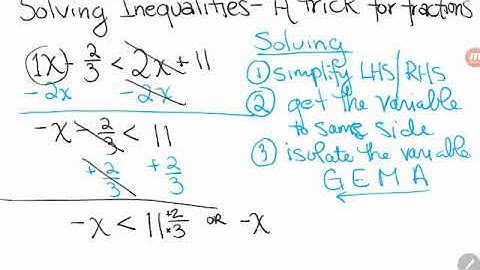 Solving Inequalities - A trick for fractions
1x - 2/3 < 2x + 11
-2x -2x
-x - 2/3 < 11
+ 2/3 + 2/3
-x < 11 2/3 OR -x
Solving
① simplify LHS/RHS
② get the variable
to same side
③ isolate the variable
G E M A